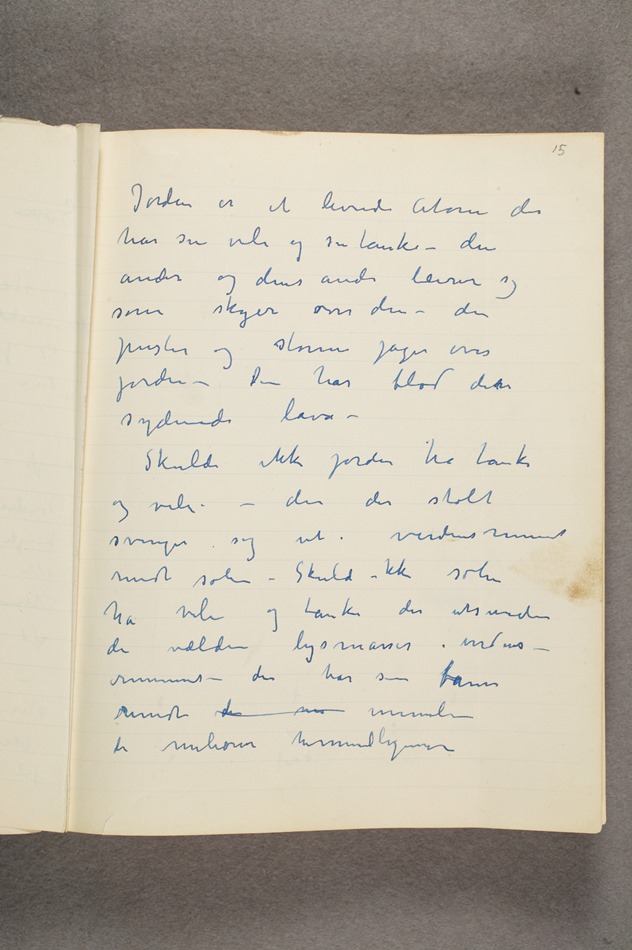 15
Jorden er et levende Atom der
har sin vilje og sin tanke – den
ander og dens ande leirer sig
som skyer over den – den
puster og storme jager over
jorden – Den har blod den
sydende lava –
Skulde ikke jorden ha tanke
og vilje – den der stolt
svinger sig ut i verdensrummet
rundt solen – Skuld ikke solen
ha vilje og tanke der utsender
de vældige lysmasser i verdens–
rummet – der har sin bane
rundt de
de milioner himmellegemer